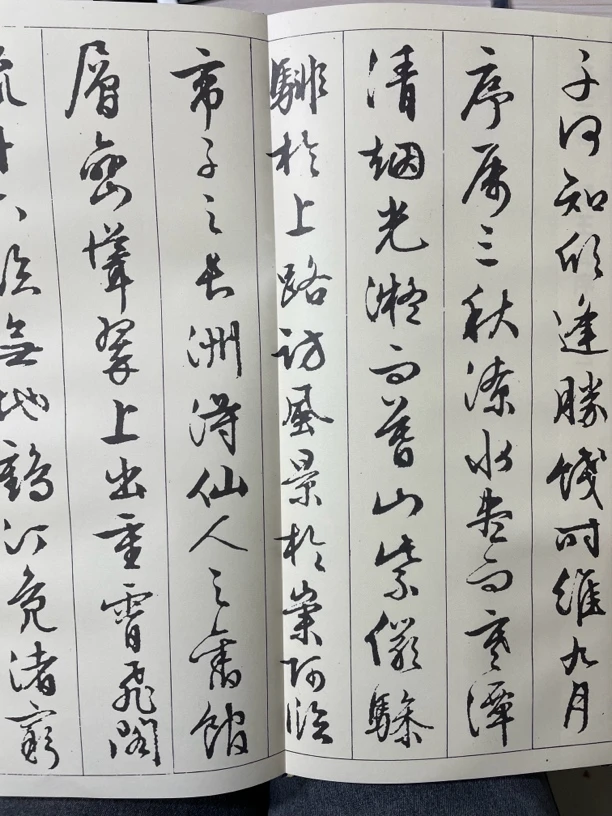 子何知欣逢勝餞时維九月
序属三秋潦水盡而寒潭
清烟光凝而暮山紫儼驂
騑於上路訪風景於崇阿臨
帝子之長洲得仙人之舊館
層巒聳翠上出重霄飛閣
流丹下臨無地鶴汀鳧渚窮